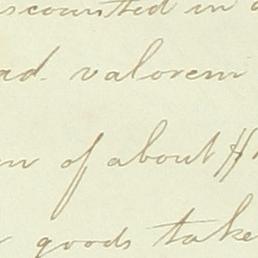 discounted in
ad. valorem
of about
goods take